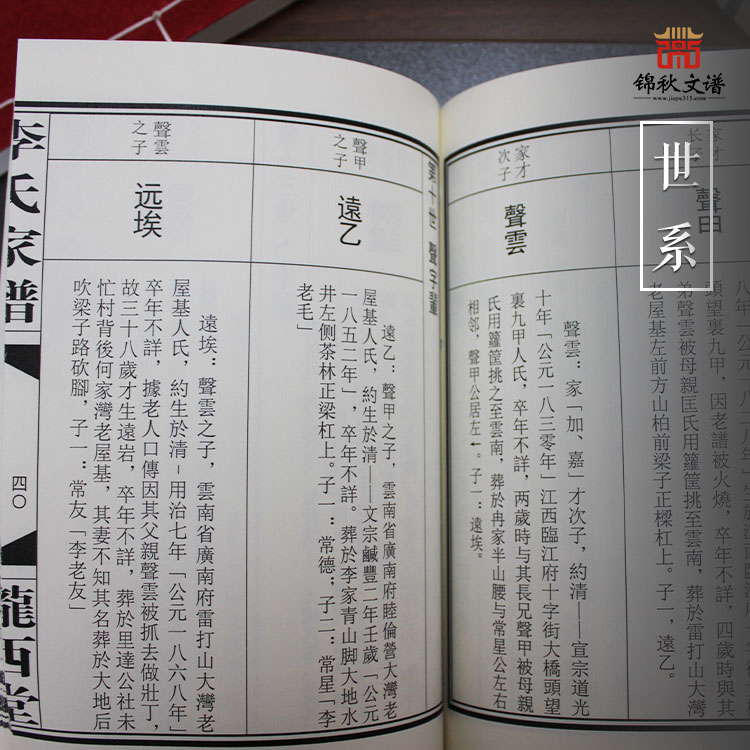 锦秋文谱
www.jiapu315.com
世系
家才
长子
頭望裏九甲，因老譜被火燒，卒年不詳，四歲時與其
弟聲雲被母親匡氏用籮筐挑至雲南，葬於雷打山大灣
老屋基左前方山柏前梁子正樑杠上。子一，遠乙。
家才
次子
聲雲
聲雲：家「加、嘉」才次子，約清——宣宗道光
十年「公元一八三零年」江西臨江府十字街大橋頭望
裏九甲人氏，卒年不詳，兩歲時與其長兄聲甲被母親
氏用籮筐挑之至雲南，葬於冉家半山腰与常星公左右
相邻，聲甲公居左一。子一：遠埃。
第十世 聲字輩
聲甲
之子
遠乙
遠乙：聲甲之子，雲南省廣南府睦倫營大灣老
屋基人氏，約生於清——文宗鹹豐二年壬歲「公元
一八五二年」，卒年不詳。葬於李家青山脚大地水
井左側茶林正梁杠上。子一：常德；子二：常星「李
老毛」
聲雲
之子
远埃
遠埃：聲雲之子，雲南省廣南府雷打山大灣老
屋基人氏，約生於清－用治七年「公元一八六八年」
卒年不詳，據老人口傳因其父親聲雲被抓去做壯丁，
故三十八歲才生遠岩，卒年不詳，葬於里達公社未
忙村背後何家灣老屋基，其妻不知其名葬於大地后
吹梁子路砍腳，子一：常友「李老友」
李氏家譜
四〇
隴西堂